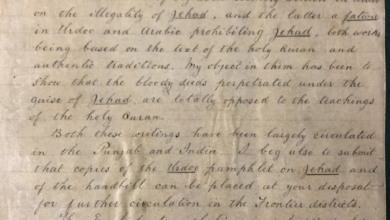 on the illegality of Jehad, and the latter a fatwa
in Urdoo and Arabic prohibiting Jehad, both works
being based on the text of the holy Quran and
authentic traditions. My object in them has been to
show that the bloody deeds perpetrated under the
guise of Jehad, are totally opposed to the teachings
of the holy Quran.
Both these writings have been largely circulated
in the Punjab and India. I beg also to submit
that copies of the Urdoo pamphlet on Jehad and
of the handbill can be placed at your disposal
for further circulation in the Frontier districts.